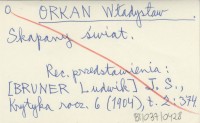 a
ORKAN Władysław.
Skąpany świat.
Rec. przedstawienia:
[BRUNER Ludwik] J. S.,
Krytyka rocz. 6 (1904), t. 2: 374